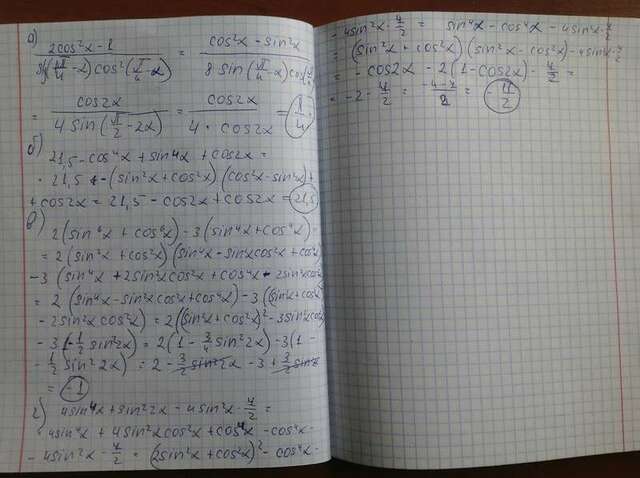 а) (2cos²x - 1) / (8tg(π/4 - x) cos²(π/4 - x)) = (cos²x - sin²x) / (8 sin(π/4 - x) cos
= cos2x / (4 sin(π/2 - 2x)) = cos2x / (4 · cos2x) =
б) 21,5 - cos⁴x + sin⁴x + cos2x =
(sin²x + cos²x) (cos²x - sin²x) +
+ cos2x = 21,5 - cos2x + cos2x = 21,5
в) 2(sin⁶x + cos⁶x) - 3(sin⁴x + cos⁴x)
= 2(sin²x + cos²x) (sin⁴x - sin²xcos²x + cos⁴x)
- 3 (sin⁴x + 2sin²xcos²x + cos⁴x - 2sin²xcos²x
= 2 (sin⁴x - sin²xcos²x + cos⁴x) - 3 ((sin²x + cos²x
- 2sin²x cos²x) = 2((sin²x + cos²x)² - 3sin²xcos²x
- 3(1 - 1/2 sin²2x) = 2(1 - 3/4 sin²2x) - 3(1 -
- 1/2 sin²2x) = 2 - 3/2 sin²2x - 3 + 3/2 sin²2x
= -1
г) 4sin⁴x + sin²2x - 4sin²x - 7/2 =
4sin⁴x + 4sin²xcos²x + cos⁴x - cos⁴x -
- 4sin²x - 7/2 = (2sin²x + cos²x)² - cos⁴x -
- 4sin²x - 7/2 = sin⁴x - cos⁴x - 4sin²x - 7/2
= (sin²x + cos²x) (sin²x - cos²x) - 4sin²x - 7/2
= - cos2x - 2(1 - cos2x) - 7/2 =
= -2 - 7/2 = (-4-7)/2 =